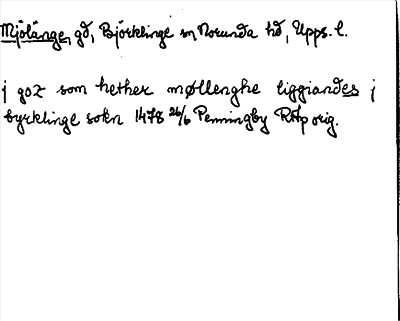 Mjölänge, gd, Björklinge sn Norunda hd, Upps. l.
j goz som hether møllenghe liggiandes j
byrklinge sokn 1478 26/6 Penningby RAp orig.